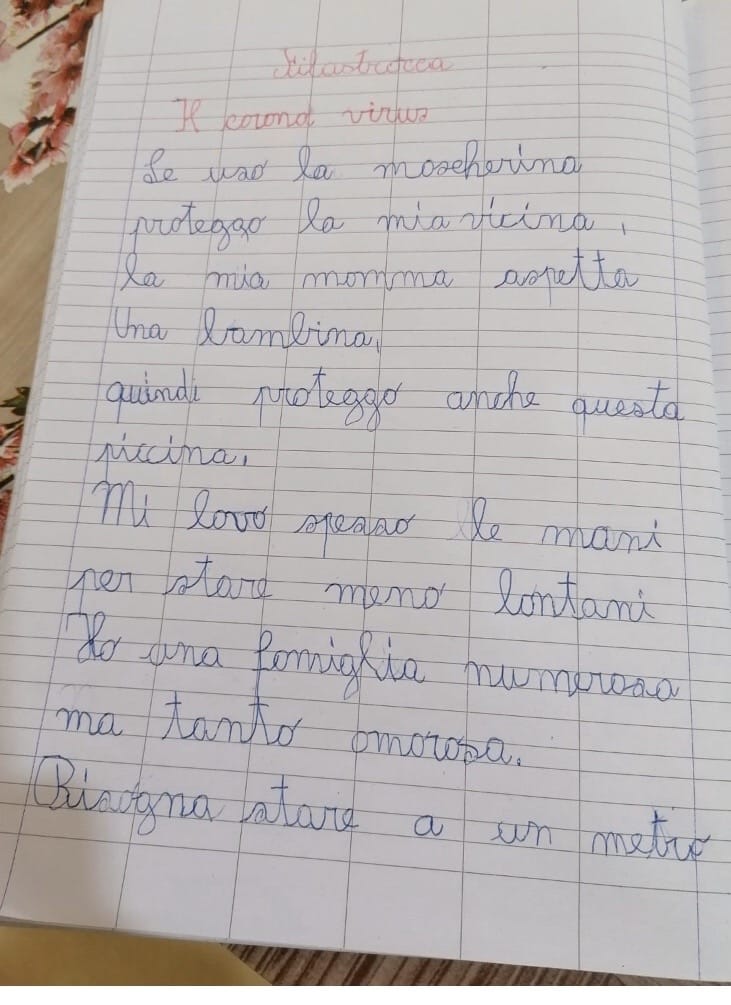 Filastrocca
Il corona virus
Se uso la mascherina
proteggo la mia vicina,
la mia mamma aspetta
Una bambina,
quindi proteggo anche questa
piccina.
Mi lavo spesso le mani
per stare meno lontani
Ho una famiglia numerosa
ma tanto amorosa.
Bisogna stare a un metro